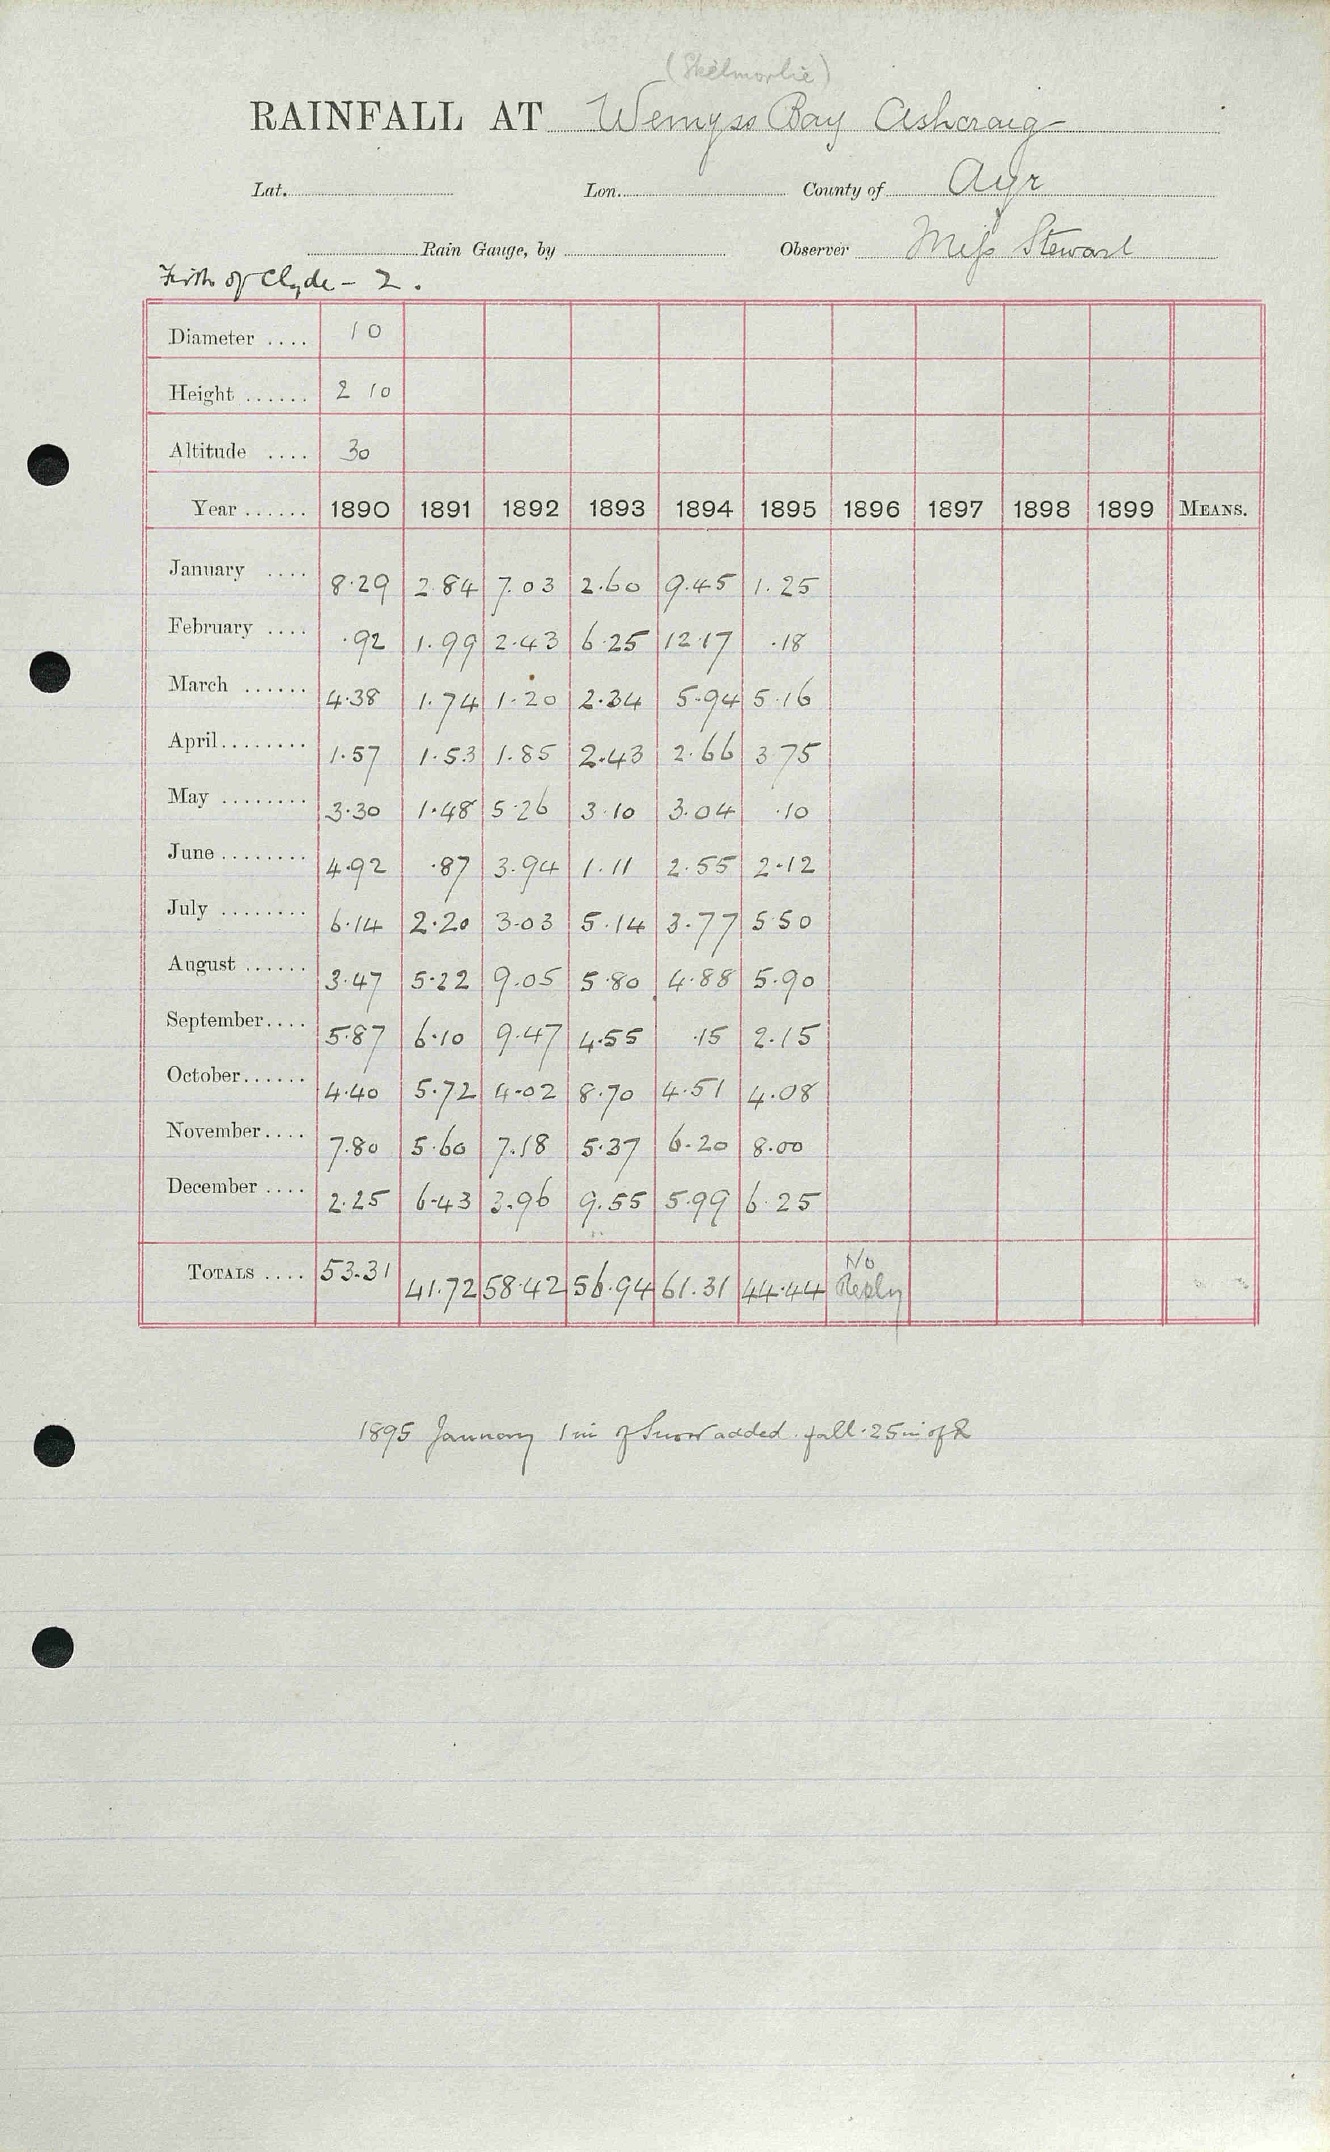 (Skelmorlie)
RAINFALL AT Wemyss Bay Ashcraig
Lat. Lon. County of Ayr
Rain Gauge, by Observer Miss Stewart
Firth of Clyde - 2.
Diameter .... 10
Height ...... 2 10
Altitude .... 30
Year ...... 1890 1891 1892 1893 1894 1895 1896 1897 1898 1899 MEANS.
January .... 8.29 2.84 7.03 2.60 9.45 1.25
February .... .92 1.99 2.43 6.25 12.17 .18
March ...... 4.38 1.74 1.20 2.34 5.94 5.16
April........ 1.57 1.53 1.85 2.43 2.66 3.75
May ........ 3.30 1.48 5.26 3.10 3.04 .10
June ........ 4.92 .87 3.94 1.11 2.55 2.12
July ........ 6.14 2.20 3.03 5.14 3.77 5.50
August ...... 3.47 5.22 9.05 5.80 4.88 5.90
September.... 5.87 6.10 9.47 4.55 .15 2.15
October...... 4.40 5.72 4.02 8.70 4.51 4.08
November.... 7.80 5.60 7.18 5.37 6.20 8.00
December .... 2.25 6.43 3.96 9.55 5.99 6.25
TOTALS .... 53.31 41.72 58.42 56.94 61.31 44.44 No Reply
1895 January 1 in of Snow added fall .25 in of R